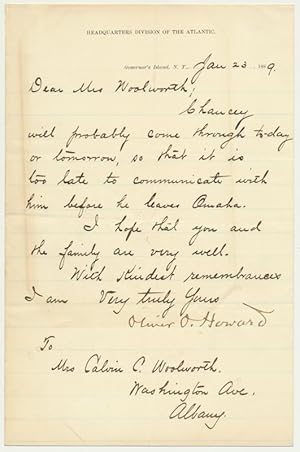 HEADQUARTERS DIVISION OF THE ATLANTIC.
Governor's Island, N. Y., Jan 23 1889.
Dear Mrs Woolworth;
Chancey
will probably come through to-day
or tomorrow, so that it is
too late to communicate with
him before he leaves Omaha.
I hope that you and
the family are very well.
With Kindest remembrances
I am Very truly Yours
Oliver O. Howard
To
Mrs Calvin C. Woolworth.
Washington Ave.
Albany.